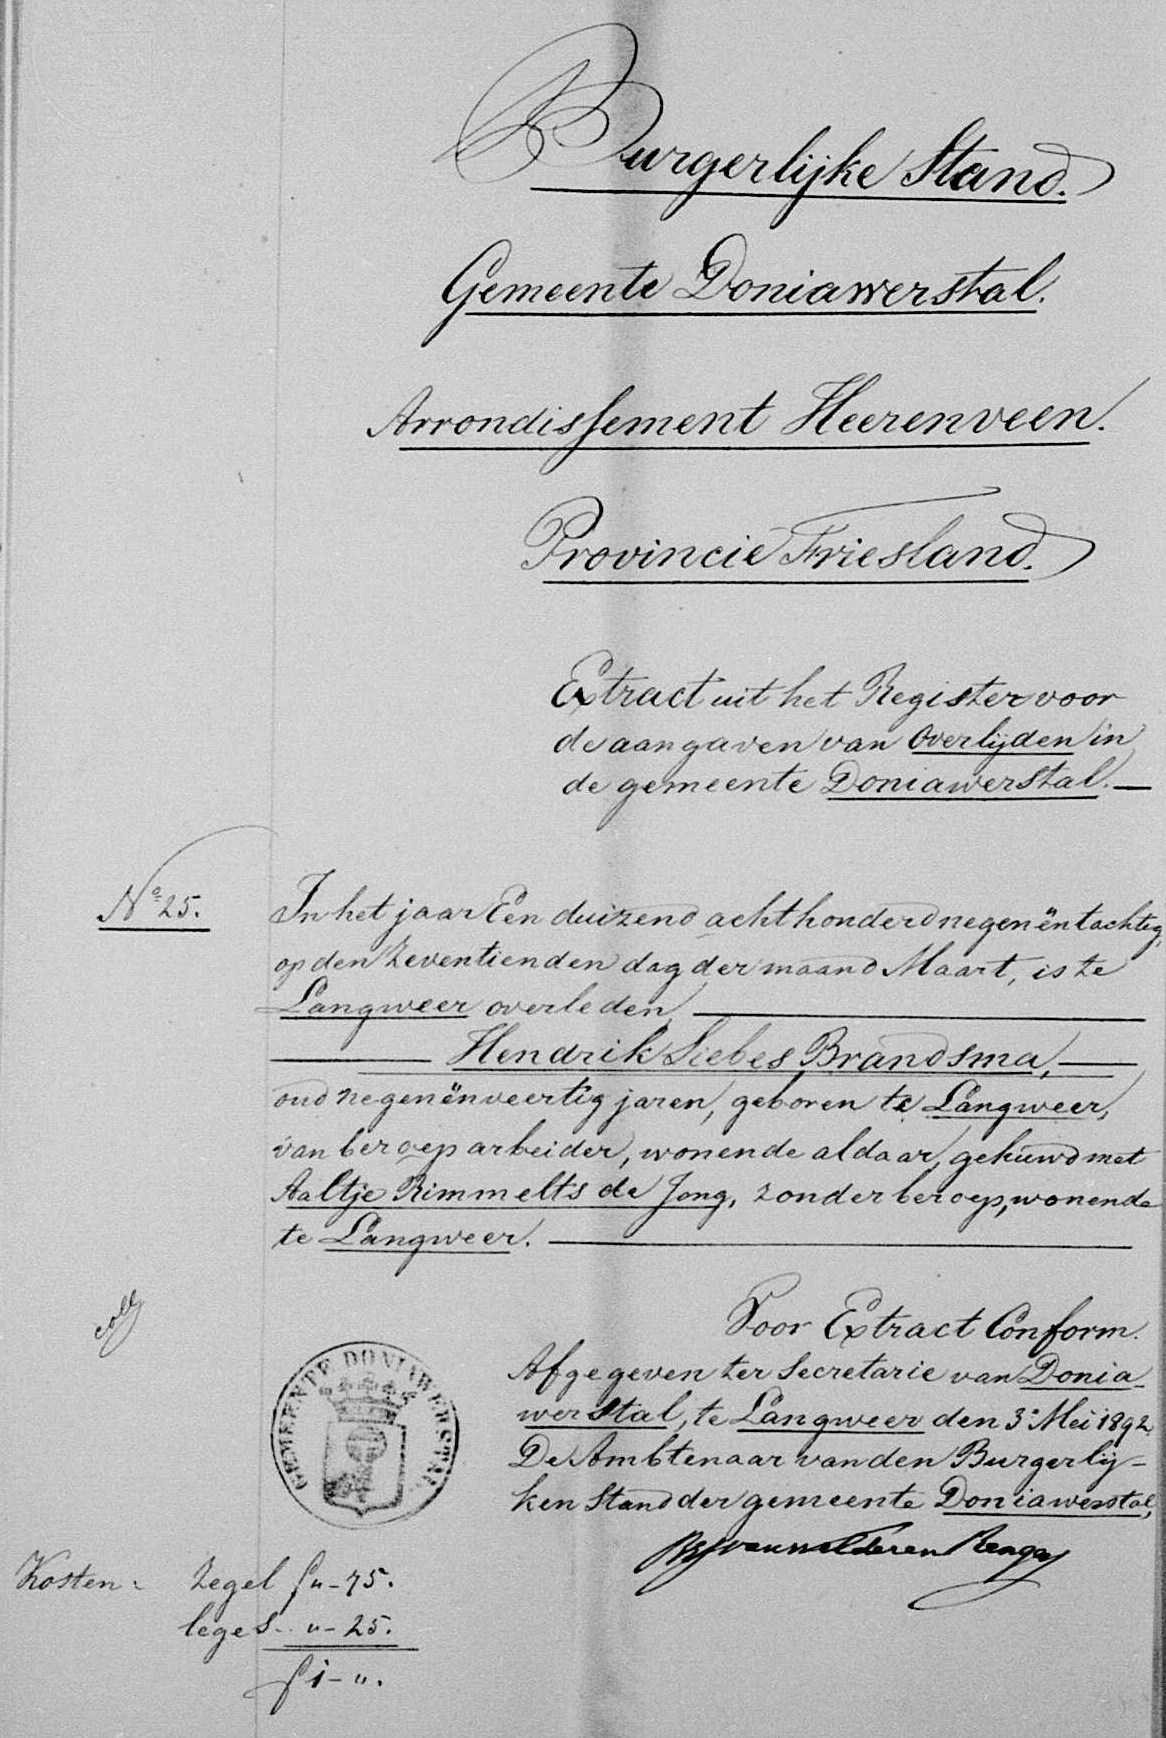 Burgerlijke Stand.
Gemeente Doniawerstal.
Arrondissement Heerenveen.
Provincie Friesland.
Extract uit het Register voor
de aangaven van Overlijden in
de gemeente Doniawerstal. —
No 25.
In het jaar Een duizend achthonderd negenëntachtig,
op den zeventienden dag der maand Maart, is te
Langweer overleden,
Hendrik Siebes Brandsma,
oud negenënveertig jaren, geboren te Langweer,
van beroep arbeider, wonende aldaar, gehuwd met
Aaltje Rimmelts de Jong, zonder beroep, wonende
te Langweer.
coll
Voor Extract Conform.
Afgegeven ter Secretarie van Donia-
werstal, te Langweer den 3e Mei 1892.
De Ambtenaar van den Burgerlij-
ken Stand der gemeente Doniawerstal,
GEMEENTE DONIAWERSTAL
van Welderen Rengers
Kosten: zegel f „-75.
leges - „-25.
f 1-„.